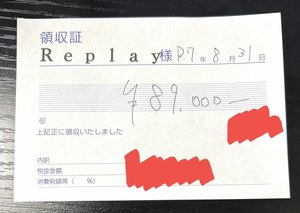 領収証
Replay様 R7年8月31日
¥89,000—
但
上記正に領収いたしました
内訳
税抜金額
消費税額等（　％）